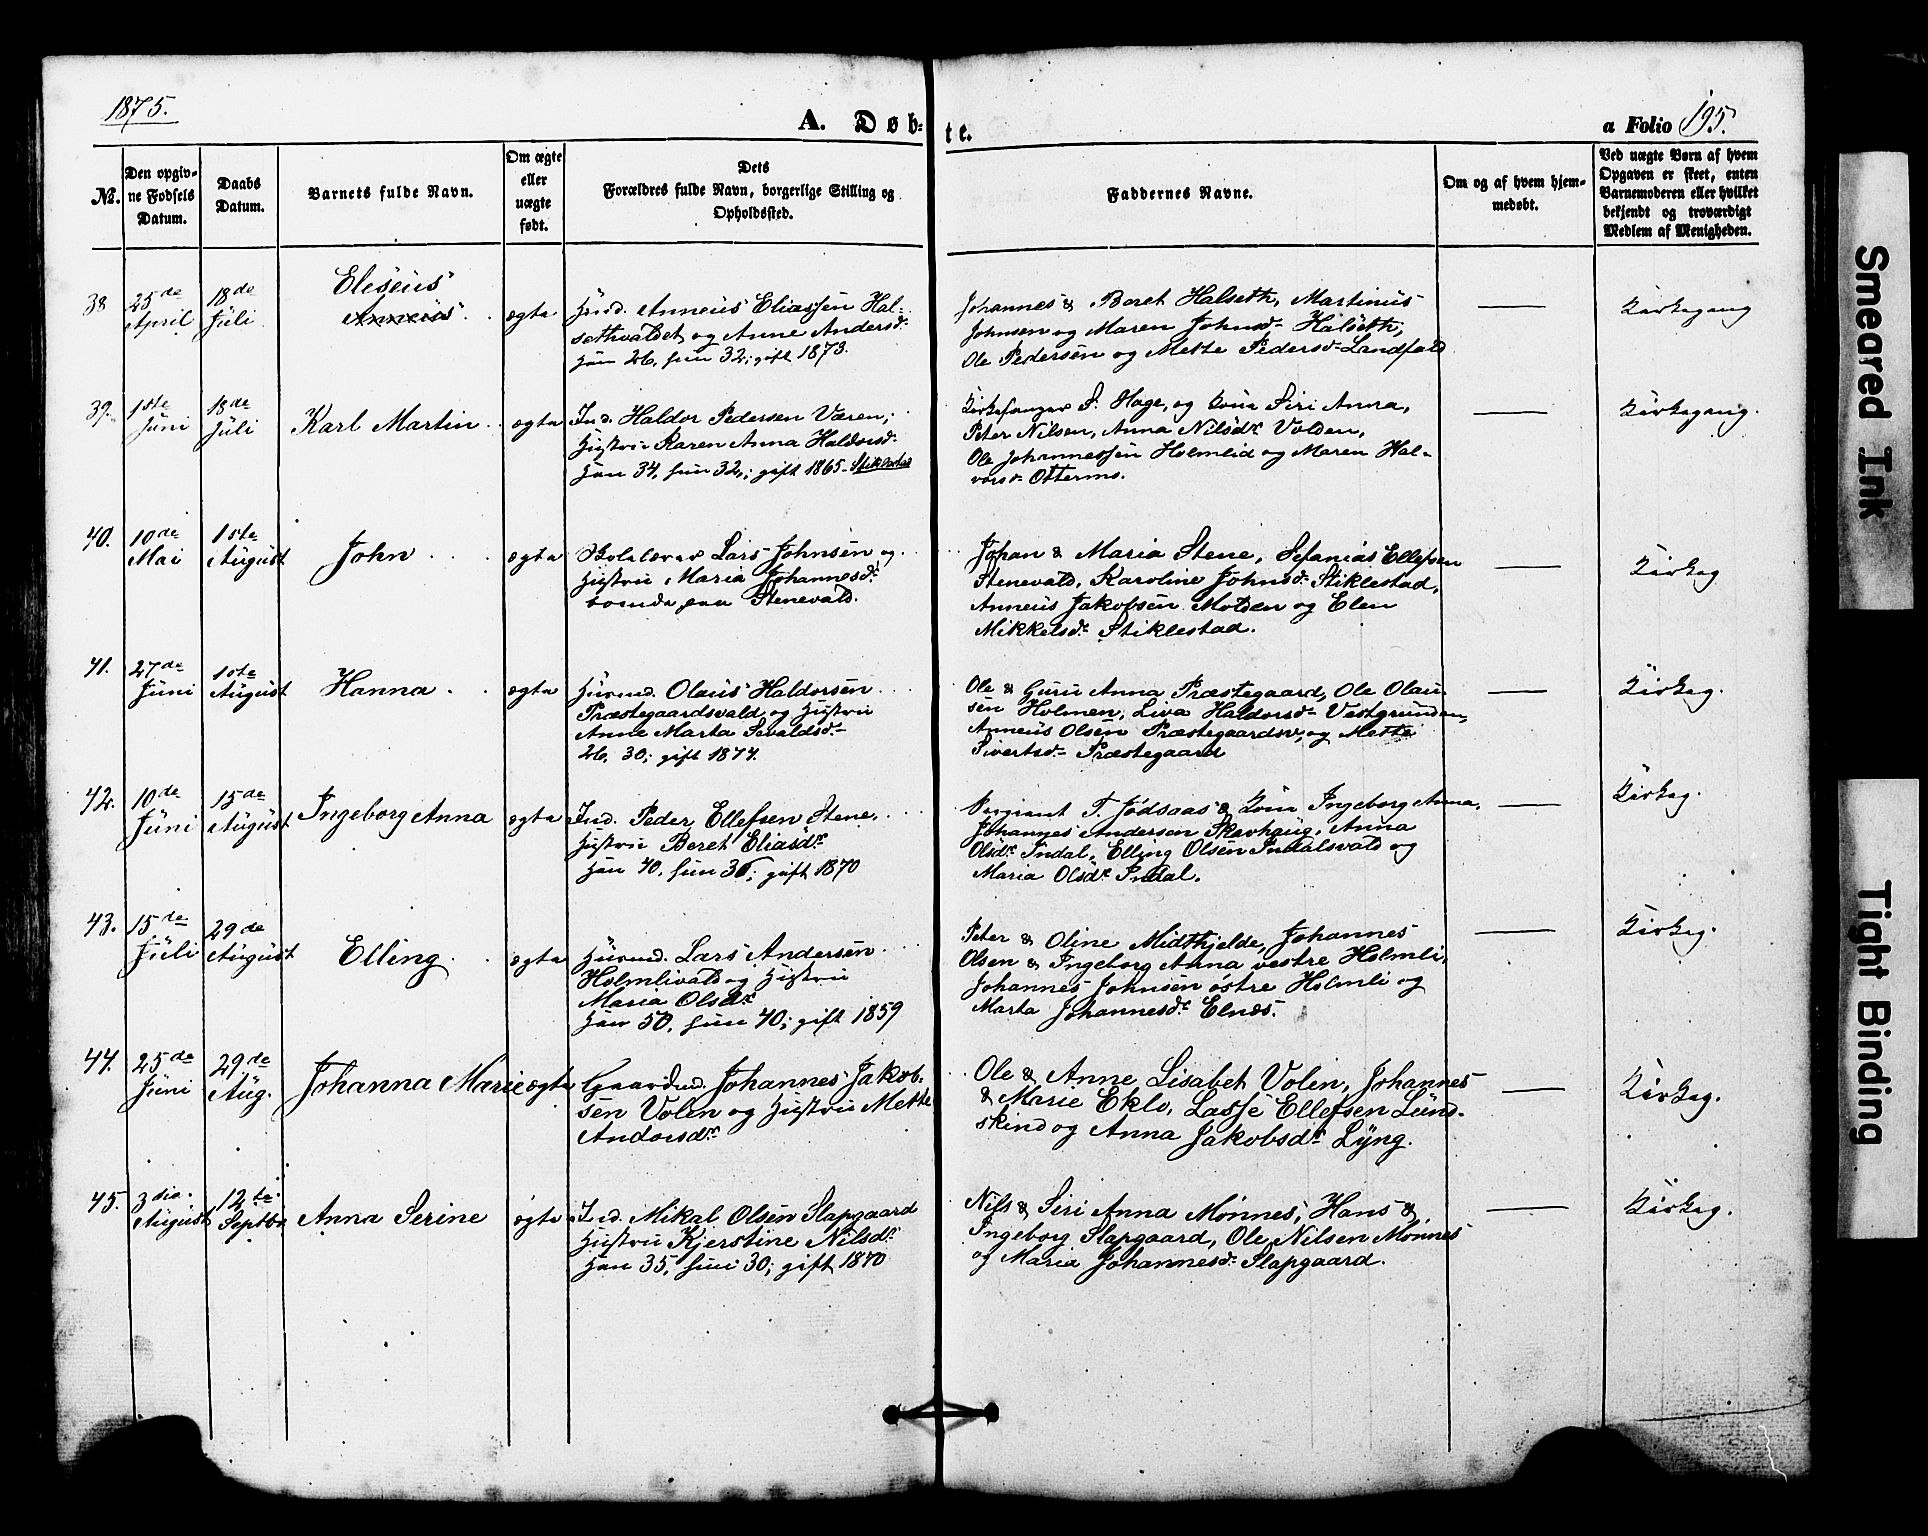 1875.
A. Døbte.
a Folio 195.
№.
Den opgivne Fødsels Datum.
Daabs Datum.
Barnets fulde Navn.
Om ægte eller uægte født.
Dets Forældres fulde Navn, borgerlige Stilling og Opholdssted.
Faddernes Navne.
Om og af hvem hjemmedøbt.
Ved uægte Børn af hvem Opgaven er skeet, enten Barnemoderen eller hvilket bekjendt og troværdigt Medlem af Menigheden.
38
25de April
18de Juli
Eliseus
Anneus
ægte
Anneus Eliassen Hal-
sethvaldet og Anne Andersd.
han 26, hun 32; gift 1873.
Johannes & Beret Halseth, Martinus
Johnsen og Maren Johnsd. Halseth,
Ole Pedersen og Mette Pedersd. Landfald
Kirkegang
39.
1ste Juni
18de Juli
Karl Martin
ægte
Ind. Haldor Pedersen Væren,
Hustru Karen Anna Haldorsd.
han 34, hun 32; gift 1865. Stiklestad
Kirkesanger S. Hage, og Kone Siri Anna,
Peter Nilsen, Anna Nilsdr. Volden,
Ole Johannessen Holmlid og Maren Hal-
vorsd. Ottermo.
Kirkegang.
40.
10de Mai
1ste August
John
ægte
Skolelærer Lars Johnsen og
Hustru Maria Johannesd.
boende paa Stenevald.
Johan & Maria Stene, Sefanias Ellefsen
Stenevald, Karoline Johnsd. Stiklestad,
Anneus Jakobsen Molden og Elen
Mikkelsd. Stiklestad.
Kirkeg
41.
27de Juni
1ste August
Hanna
ægte
Husmd. Olaus Haldorsen
Præstegaardsvald og Hustru
Anne Marta Sevaldsd.
26, 30; gift 1874.
Ole & Guru Anna Præstegaard, Ole Olau-
sen Holmen, Liva Haldorsd. Vestgrunden,
Anneus Olsen Præstegaardsv. og Mette
Sivertsd. Præstegaard
Kirkeg.
42.
10de Juni
15de August
Ingeborg Anna
ægte
Ind. Peder Ellefsen Stene,
Hustru Beret Eliasdr.
han 40, hun 36; gift 1870
Sergiant T. Jødsaas & Kone Ingeborg Anna,
Johannes Andersen Skavhaug, Anna
Olsdr. Indal, Elling Olsen Indalsvald og
Maria Olsdr. Indal.
Kirkeg.
43.
15de Juli
29de August
Elling
ægte
Husmd. Lars Andersen
Holmlivald og Hustru
Maria Olsdr.
han 50, hun 40; gift 1859
Peter & Oline Midthjelde, Johannes
Olsen & Ingeborg Anna vestre Holmli,
Johannes Johnsen østre Holmli og
Marta Johannesdr. Elnes.
Kirkeg.
44.
25de Juni
29de Aug.
Johanna Marie
ægte
Gaardmd. Johannes Jakob-
sen Volen og Hustru Mette
Andorsdr.
Ole & Anne Lisabet Volen, Johannes
& Marie Eklo, Lasse Ellefsen Lund-
skind og Anna Jakobsdr. Lyng.
Kirkeg.
45.
3die August
12te Septbr.
Anna Serine
ægte
Ind. Mikal Olsen Slapgaard
Hustru Kjerstine Nilsd.
han 35, hun 30; gift 1870
Nils & Siri Anna Mønnes, Hans &
Ingeborg Slapgaard, Ole Nilsen Mønnes
og Maria Johannesd. Slapgaard.
Kirkeg.
Smeared Ink
Tight Binding